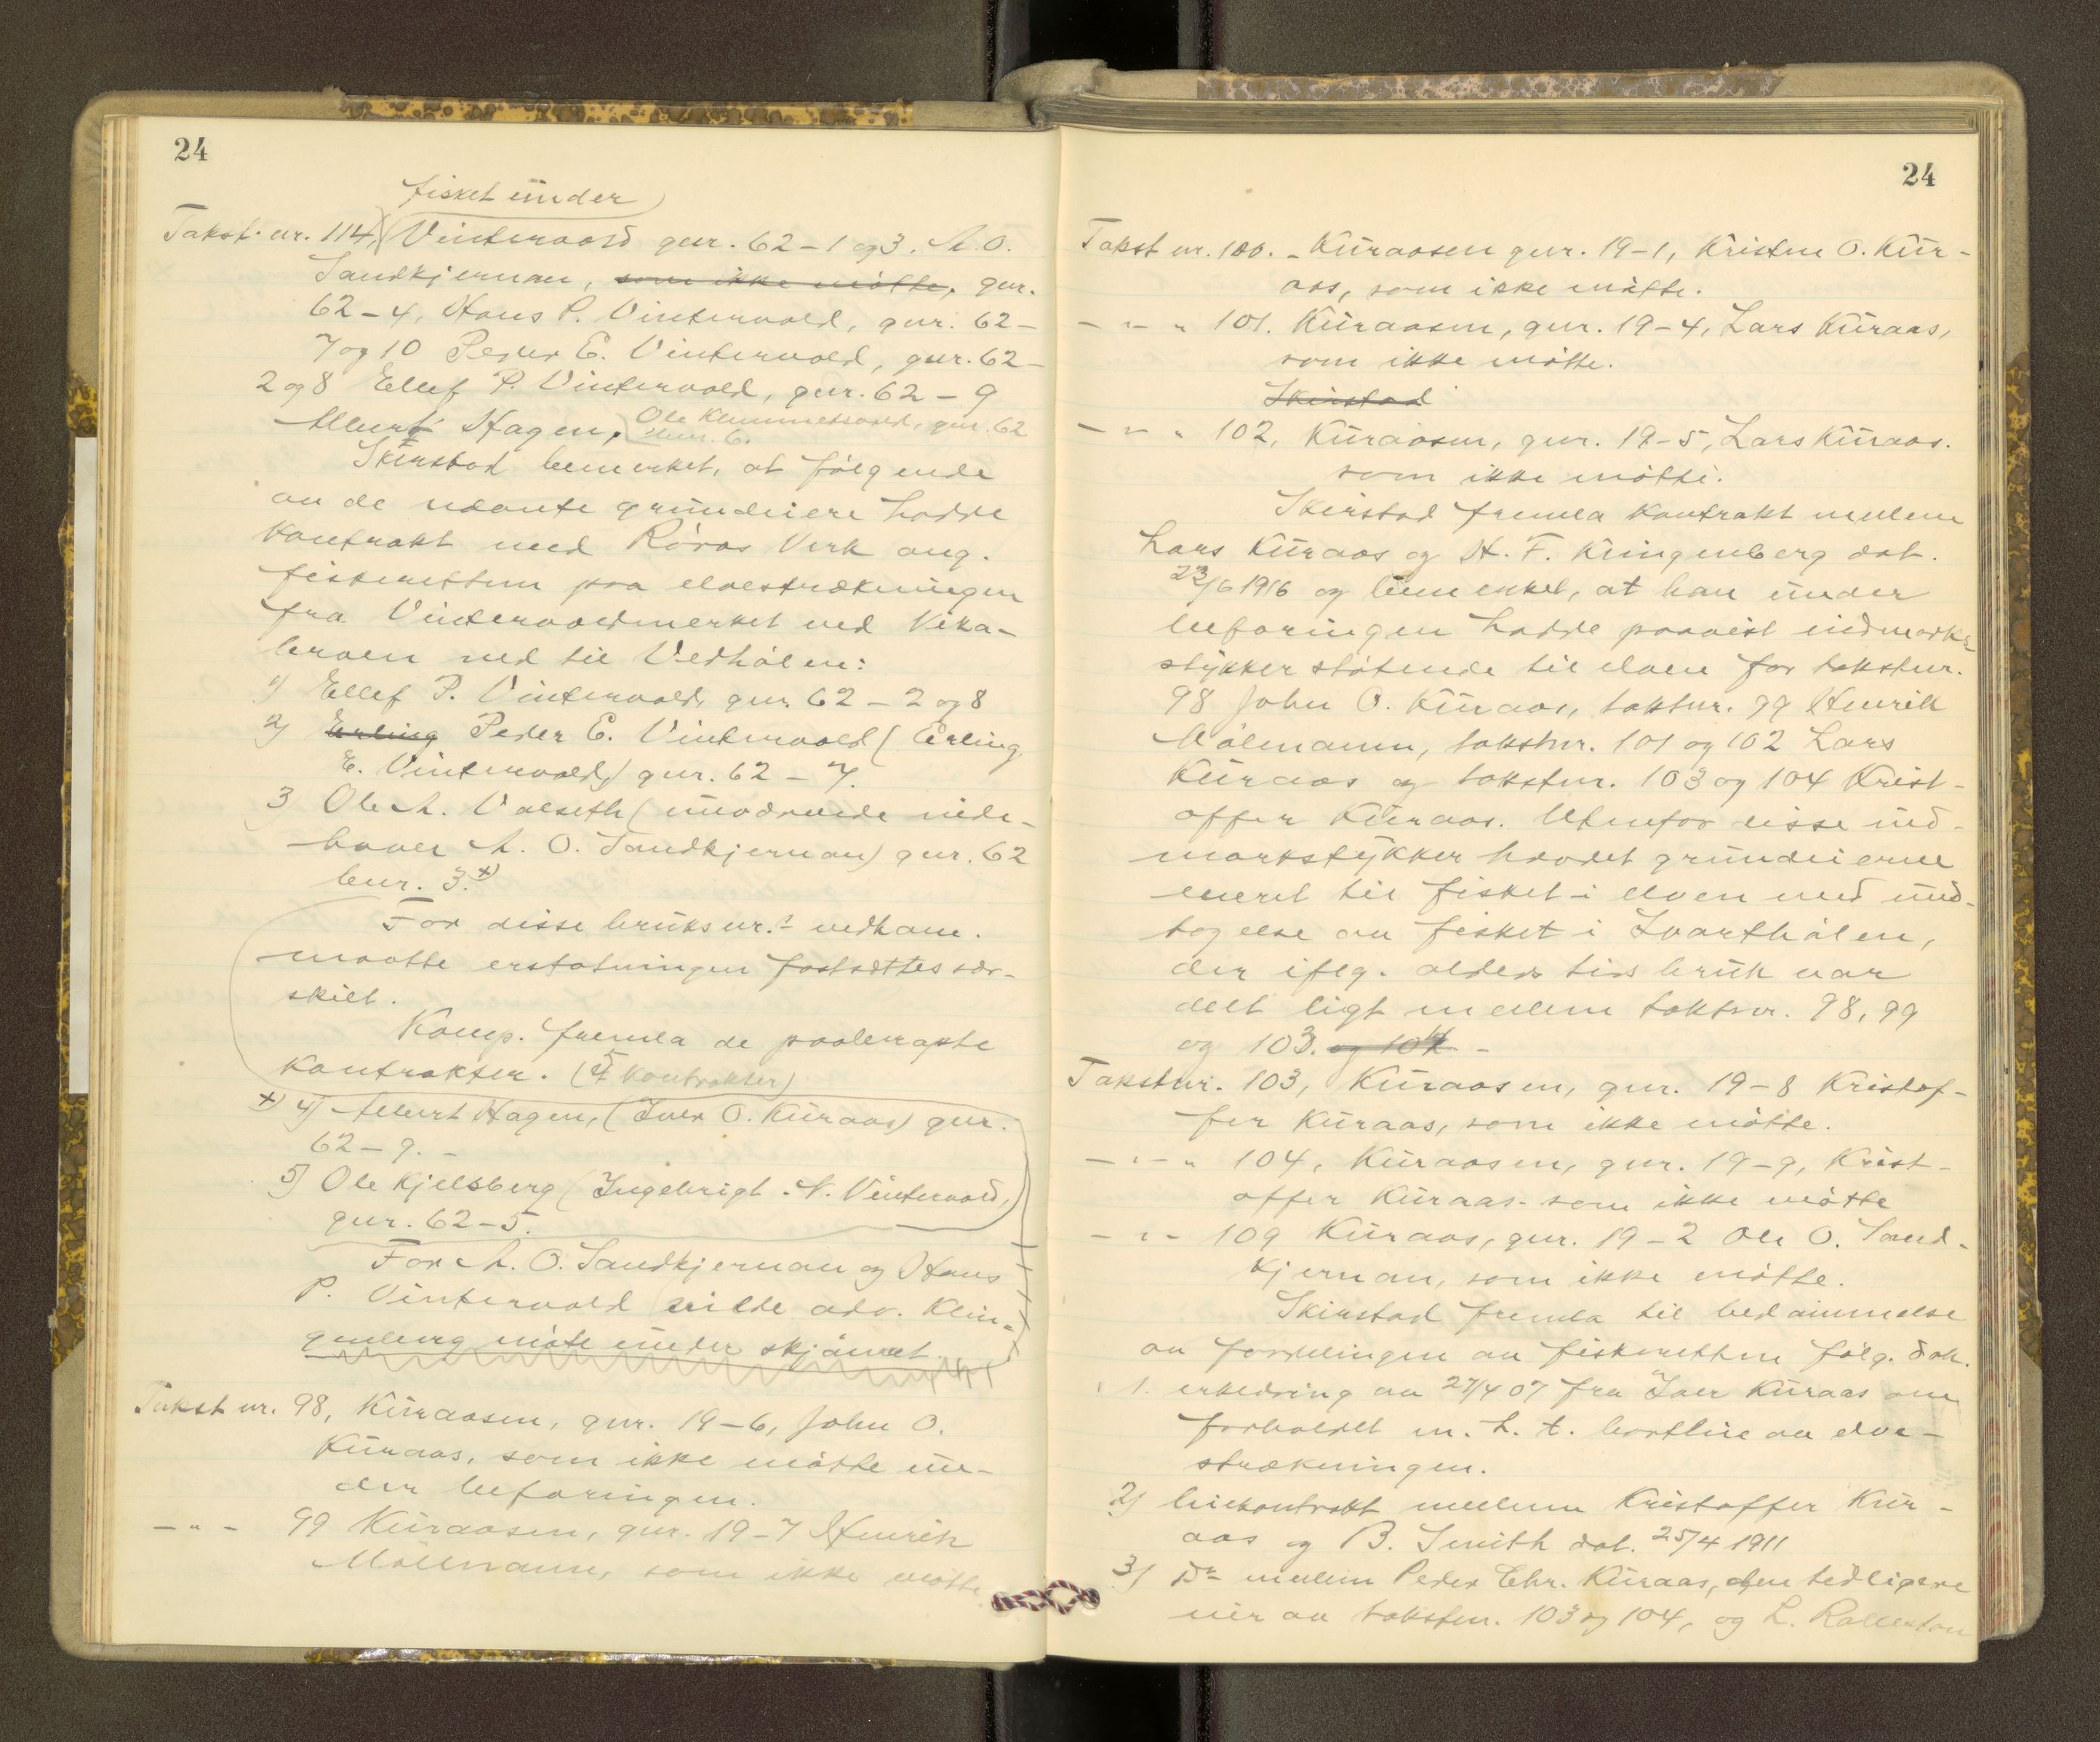 24
fisket under
Takst nr. 114, Vintervold gnr. 62-1 og 3. A. O.
Sandkjernan, som ikke møtte, gnr.
62-4, Hans P. Vintervold, gnr. 62-
7 og 10 Peder E. Vintervold, gnr. 62-
2 og 8 Ellef P. Vintervold, gnr. 62-9
Albert Hagen, Ole Klemmetsvold, gnr. 62
bnr. 6.
Skirstad bemerket, at følgende
av de nævnte grundeiere hadde
kontrakt med Røros Verk ang.
fiskeretten paa elvestrækningen
fra Vintervoldmerket ved Vika-
broen ned til Vedhølen:
1) Ellef P. Vintervold, gnr. 62-2 og 8
2) Erling Peder E. Vintervold (Erling
E. Vintervold) gnr. 62-7.
3 Ole A. Volseth (nuværende inde-
haver A. O. Sandkjernan) gnr. 62
bnr. 3. +)
For disse bruksnr.s vedkom.
maatte erstatningen fastsættes sær-
skilt.
Komp. fremla de paaberopte
kontrakter. (5 kontrakter)
+) 4) Albert Hagen, (Iver O. Kuraas) gnr.
62-9. -
5) Ole Kjelsberg (Ingebrigt N. Vintervold,
gnr. 62-5.
For A. O. Sandkjernan og Hans
P. Vintervold vilde adv. Klin-
genberg møte under skjønnet.
Takst nr. 98, Kuraasen, gnr. 19-6, John O.
Kuraas, som ikke møtte un-
der befaringen.
- " - 99 Kuraasen, gnr. 19-7 Henrik
Møllmann, som ikke møtte
24
Takst nr. 100. - Kuraasen gnr. 19-1, Kristen O. Kur-
aas, som ikke møtte.
- " - " 101. Kuraasen, gnr. 19-4, Lars Kuraas,
som ikke møtte.
Skirstad
- " - " 102, Kuraasen, gnr. 19-5, Lars Kuraas.
som ikke møtte.
Skirstad fremla kontrakt mellem
Lars Kuraas og H. F. Klingenberg dat.
23/6 1916 og bemerket, at han under
befaringen hadde paavist indmarks-
stykker støtende til elven for takstnr.
98 John O. Kuraas, takstnr. 99 Henrik
Mølmann, takstnr. 101 og 102 Lars
Kuraas og takstnr. 103 og 104 Krist-
offer Kuraas. Utenfor disse ind-
markstykker hævdet grundeierne
eneret til fisket i elven med und-
tagelse av fisket i Svarthølen,
der iflg. alders tids bruk var
delt ligt mellem takstnr. 98, 99
og 103. og 104 -
Takstnr. 103, Kuraasen, gnr. 19-8 Kristof-
fer Kuraas, som ikke møtte.
- " - " 104, Kuraasen, gnr. 19-9, Krist-
offer Kuraas. som ikke møtte
- " - 109 Kuraas, gnr. 19-2 Ole O. Sand-
kjernan, som ikke møtte.
Skirstad fremla til bedømmelse
av fordelingen av fiskeretten følg. dok.
1. erklæring av 27/4 07 fra Iver Kuraas om
forholdet m. h. t. bortleie av elve-
strækningen.
2) leiekontrakt mellem Kristoffer Kur-
aas og B. Smith dat. 25/4 1911
3) Do mellem Peder Chr. Kuraas, den tidligere
eier av takstnr. 103 og 104, og L.